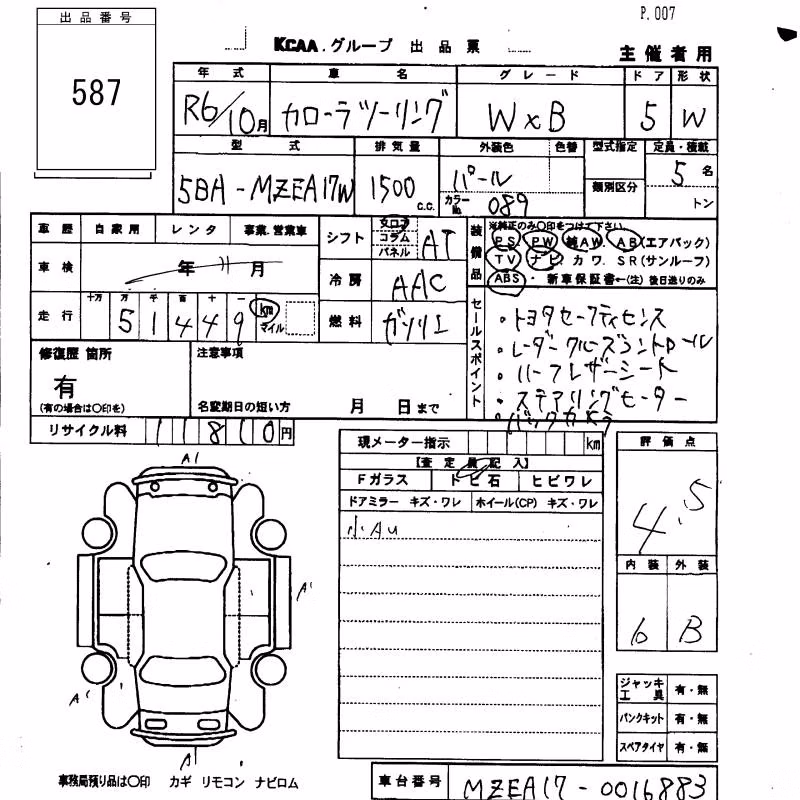 P.007
出品番号
587
KCAA.グループ 出品票
主催者用
年式 車名 グレード ドア 形状
R6/10月 カローラツーリング W×B 5 W
型式 排気量 外装色 色替 型式指定 定員・積載
類別区分
5BA-MZEA17W 1500 c.c. パール カラーNo. 089 5名
トン
車歴 自家用 レンタ 事業.営業車
車検 年 11月
走行 十万 万 千 百 十 一
5 1 4 4 9 km マイル
シフト フロア コラム パネル AT
冷房 AAC
燃料 ガソリン
装備品
※純正のみ○印をつけて下さい
PS PW 純AW AB(エアバック)
TV ナビ カワ. SR(サンルーフ)
ABS・新車保証書←(注) 後日送りのみ
セールスポイント
・トヨタセーフティセンス
・レーダークルーズコントロール
・ハーフレザーシート
・ステアリングヒーター
・バックカメラ
修復歴 箇所
有
(有の場合は○印を)
注意事項
名変期日の短い方 月 日まで
リサイクル料 11810円
現メーター指示 km
【査定員記入】
Fガラス トビ石 ヒビワレ
ドアミラー キズ・ワレ ホイール(CP) キズ・ワレ
小AU
評価点
4.5
内装 外装
6 B
A1
A'
A'
A1
ジャッキ工具 有・無
パンクキット 有・無
スペアタイヤ 有・無
事務局預り品は○印 カギ リモコン ナビロム
車台番号 MZEA17-0016883